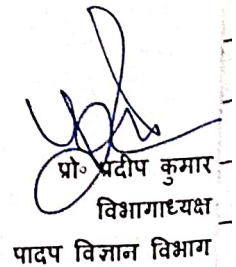 प्रो० प्रदीप कुमार
विभागाध्यक्ष
पादप विज्ञान विभाग